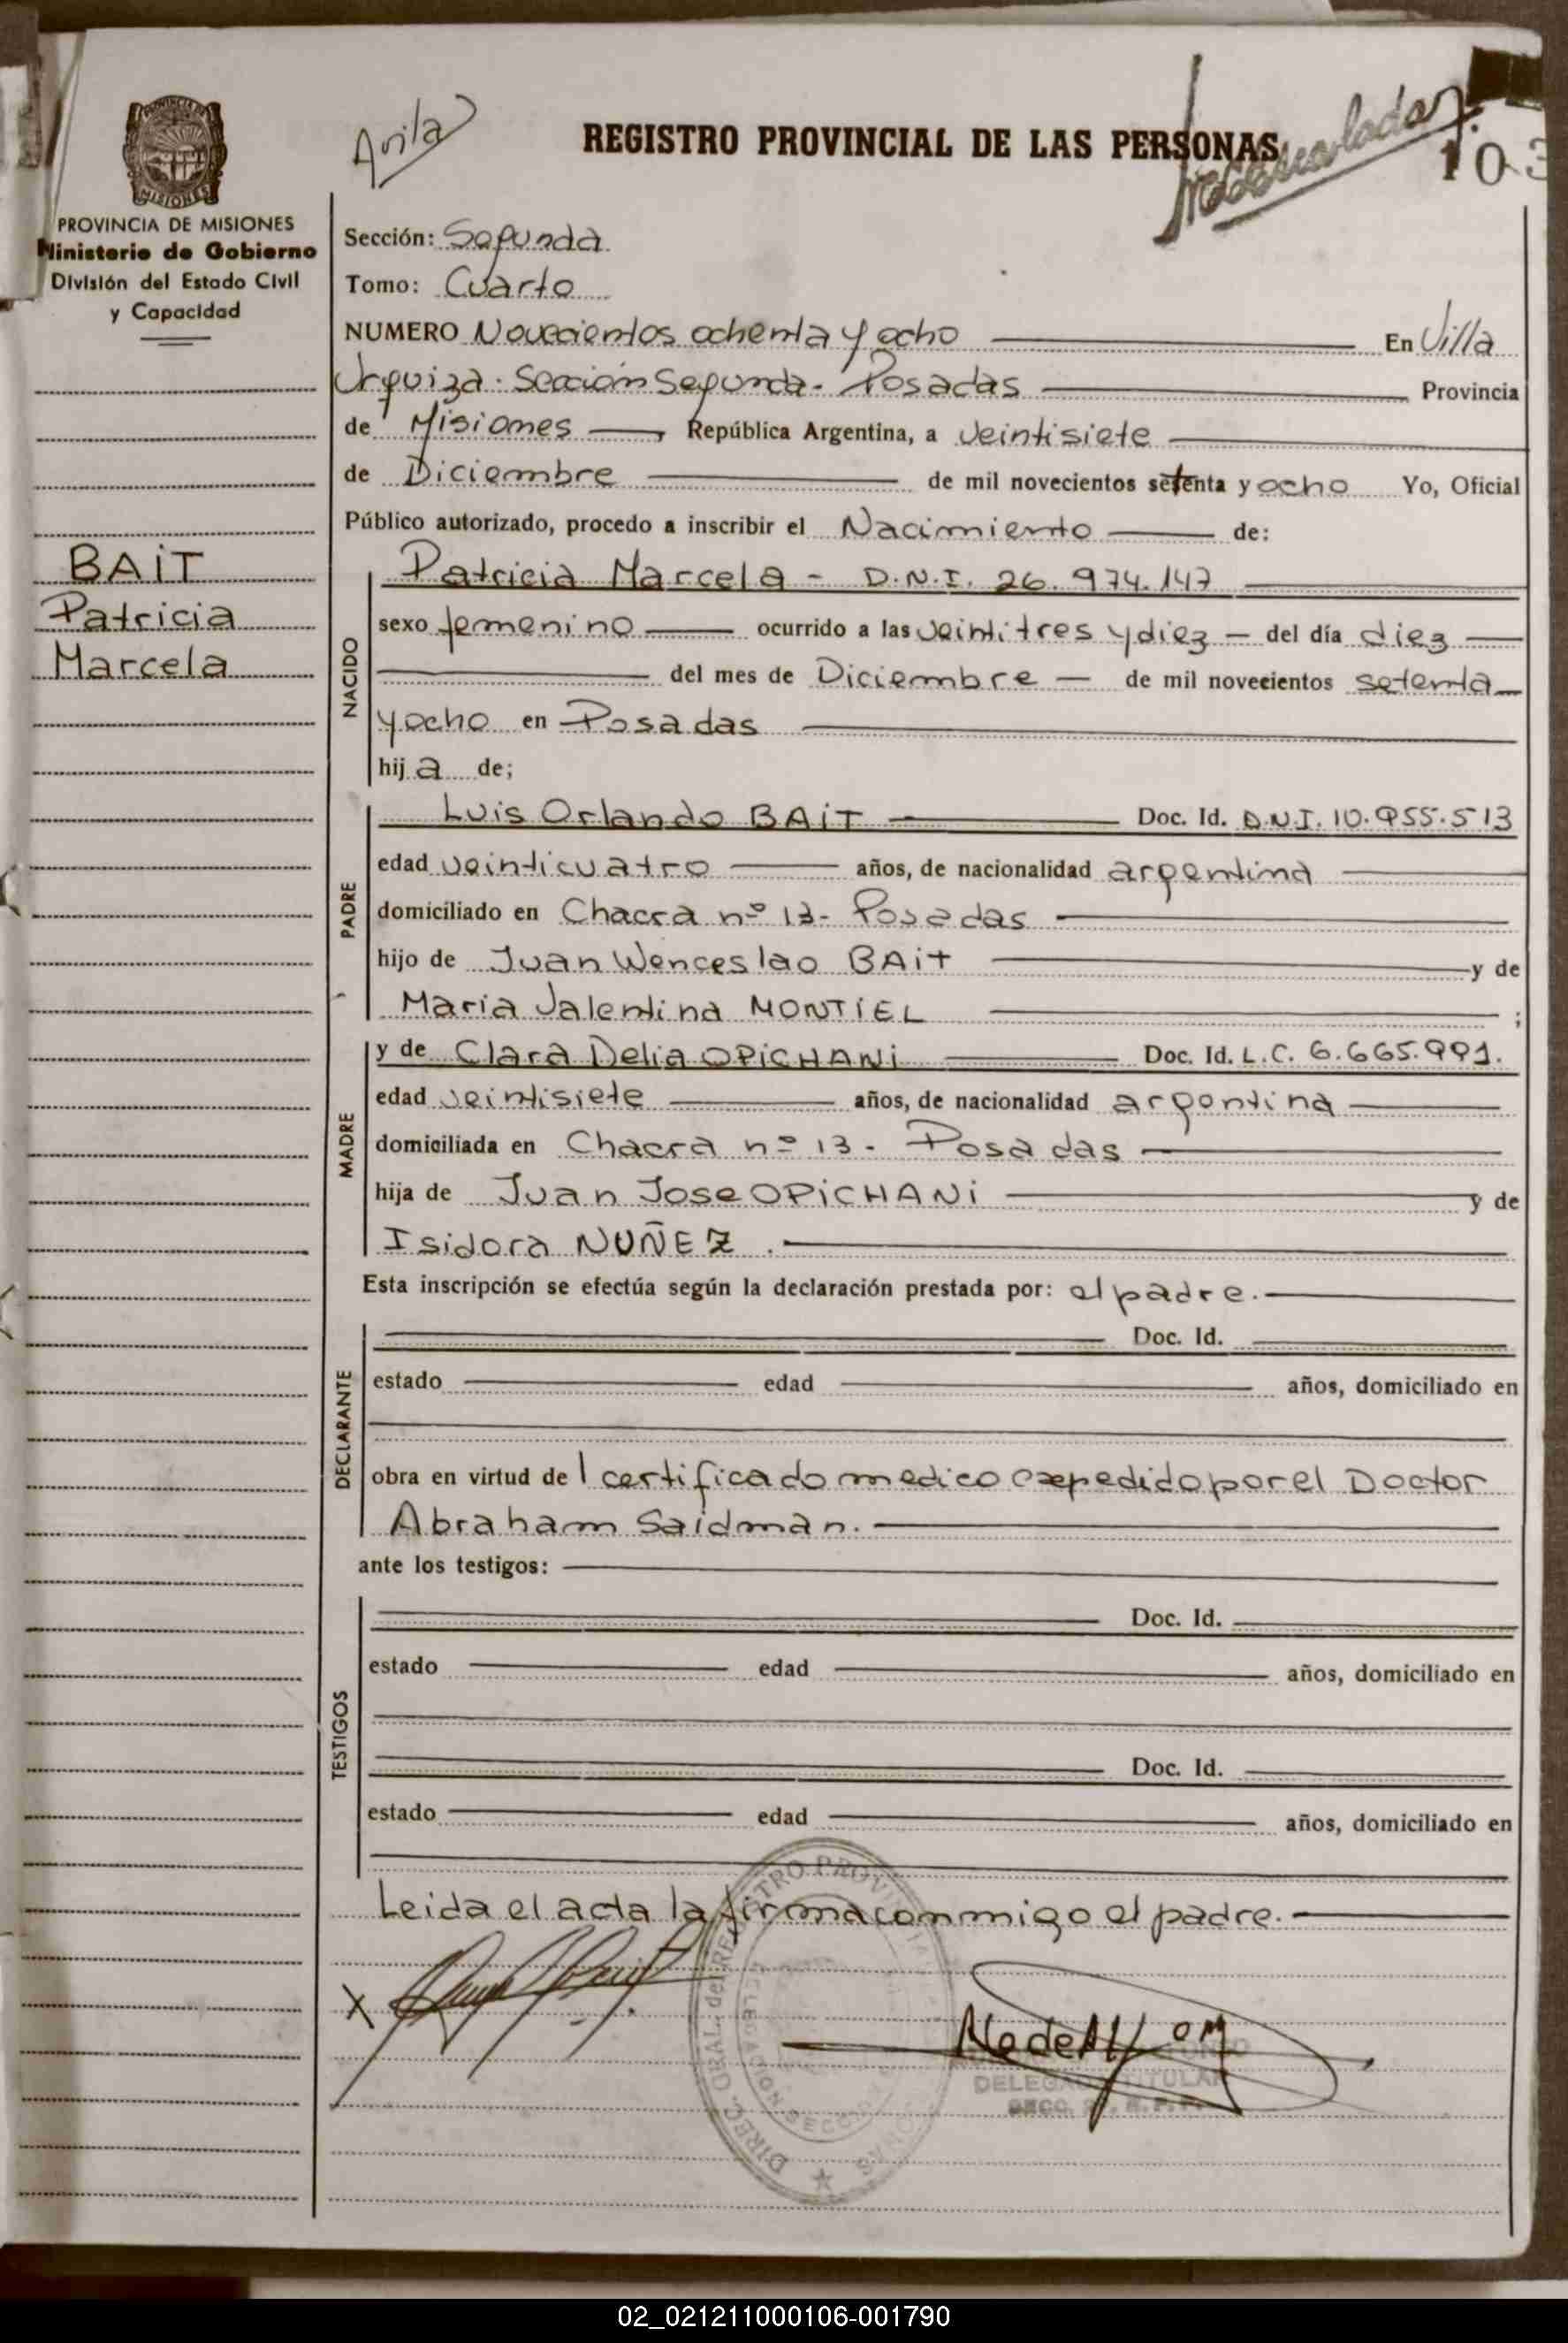 PROVINCIA DE MISIONES
MISIONES
PROVINCIA DE MISIONES
Ministerio de Gobierno
División del Estado Civil
y Capacidad
BAiT
Patricia
Marcela
Avila
REGISTRO PROVINCIAL DE LAS PERSONAS
103
Sección: Segunda
Tomo: Cuarto
NUMERO Novecientos ochenta y ocho En Villa
Urquiza. Sección Segunda - Posadas Provincia
de Misiones, República Argentina, a veintisiete
de Diciembre de mil novecientos setenta y ocho Yo, Oficial
Público autorizado, procedo a inscribir el Nacimiento de:
NACIDO
Patricia Marcela - D.N.I. 26.974.147
sexo femenino ocurrido a las veintitres y diez - del día diez
del mes de Diciembre - de mil novecientos setenta
y ocho en Posadas
hija de;
PADRE
Luis Orlando BAiT Doc. Id. D.N.I. 10.955.513
edad veinticuatro años, de nacionalidad argentina
domiciliado en Chacra nº 13 - Posadas
hijo de Juan Wenceslao BAit y de
Maria Valentina MONTiEL ;
MADRE
y de Clara Delia OPiCHANi Doc. Id. L.C. 6.665.991.
edad veintisiete años, de nacionalidad argentina
domiciliada en Chacra nº 13 - Posadas
hija de Juan Jose OPiCHANi y de
Isidora NUÑEZ.
Esta inscripción se efectúa según la declaración prestada por: el padre.
DECLARANTE
Doc. Id.
estado edad años, domiciliado en
obra en virtud de 1 certificado medico expedido por el Doctor
Abraham Saidman.
ante los testigos:
TESTIGOS
Doc. Id.
estado edad años, domiciliado en
Doc. Id.
estado edad años, domiciliado en
Leida el acta la firma conmigo el padre.
X
DIREC. GRAL. del REGISTRO PROVINCIAL
DELEGACION SECCION
DELEGADA TITULAR
02_021211000106-001790